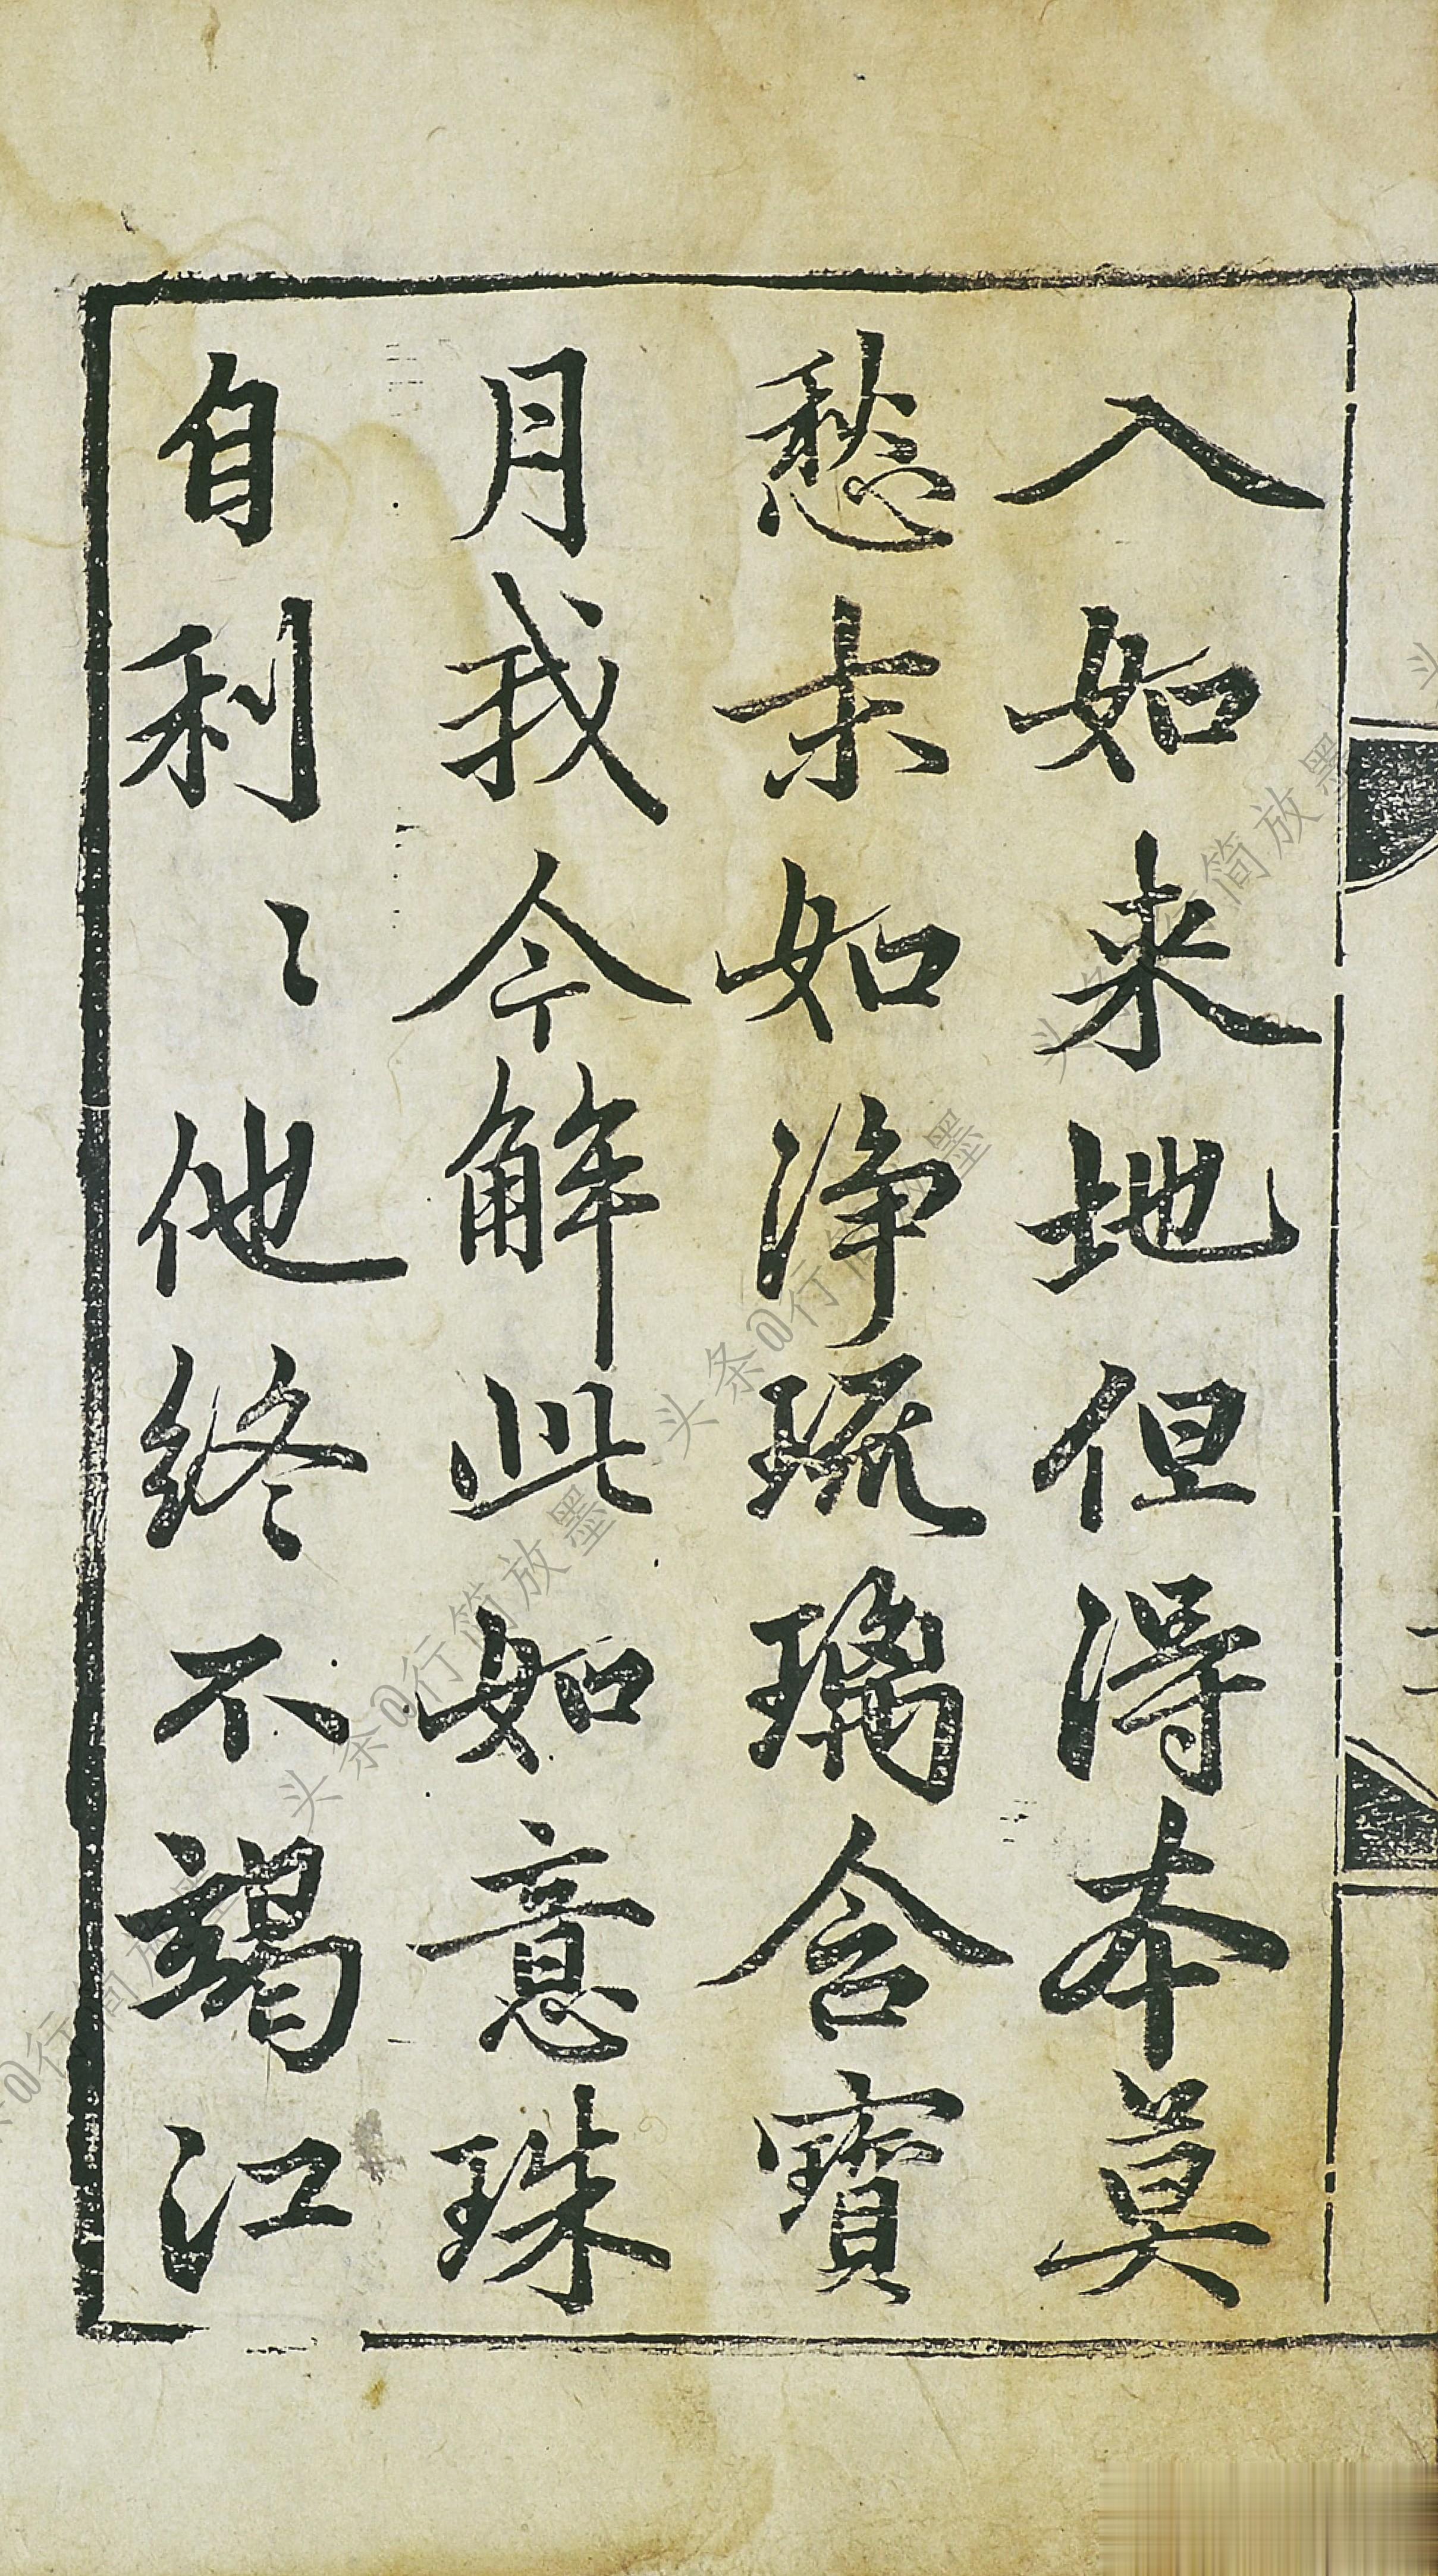 入如来地但得本莫
愁末如淨琉璃含寶
月我今解此如意珠
自利〻他終不竭江
头条@行简放墨
头条@行简放墨
头条@行简放墨